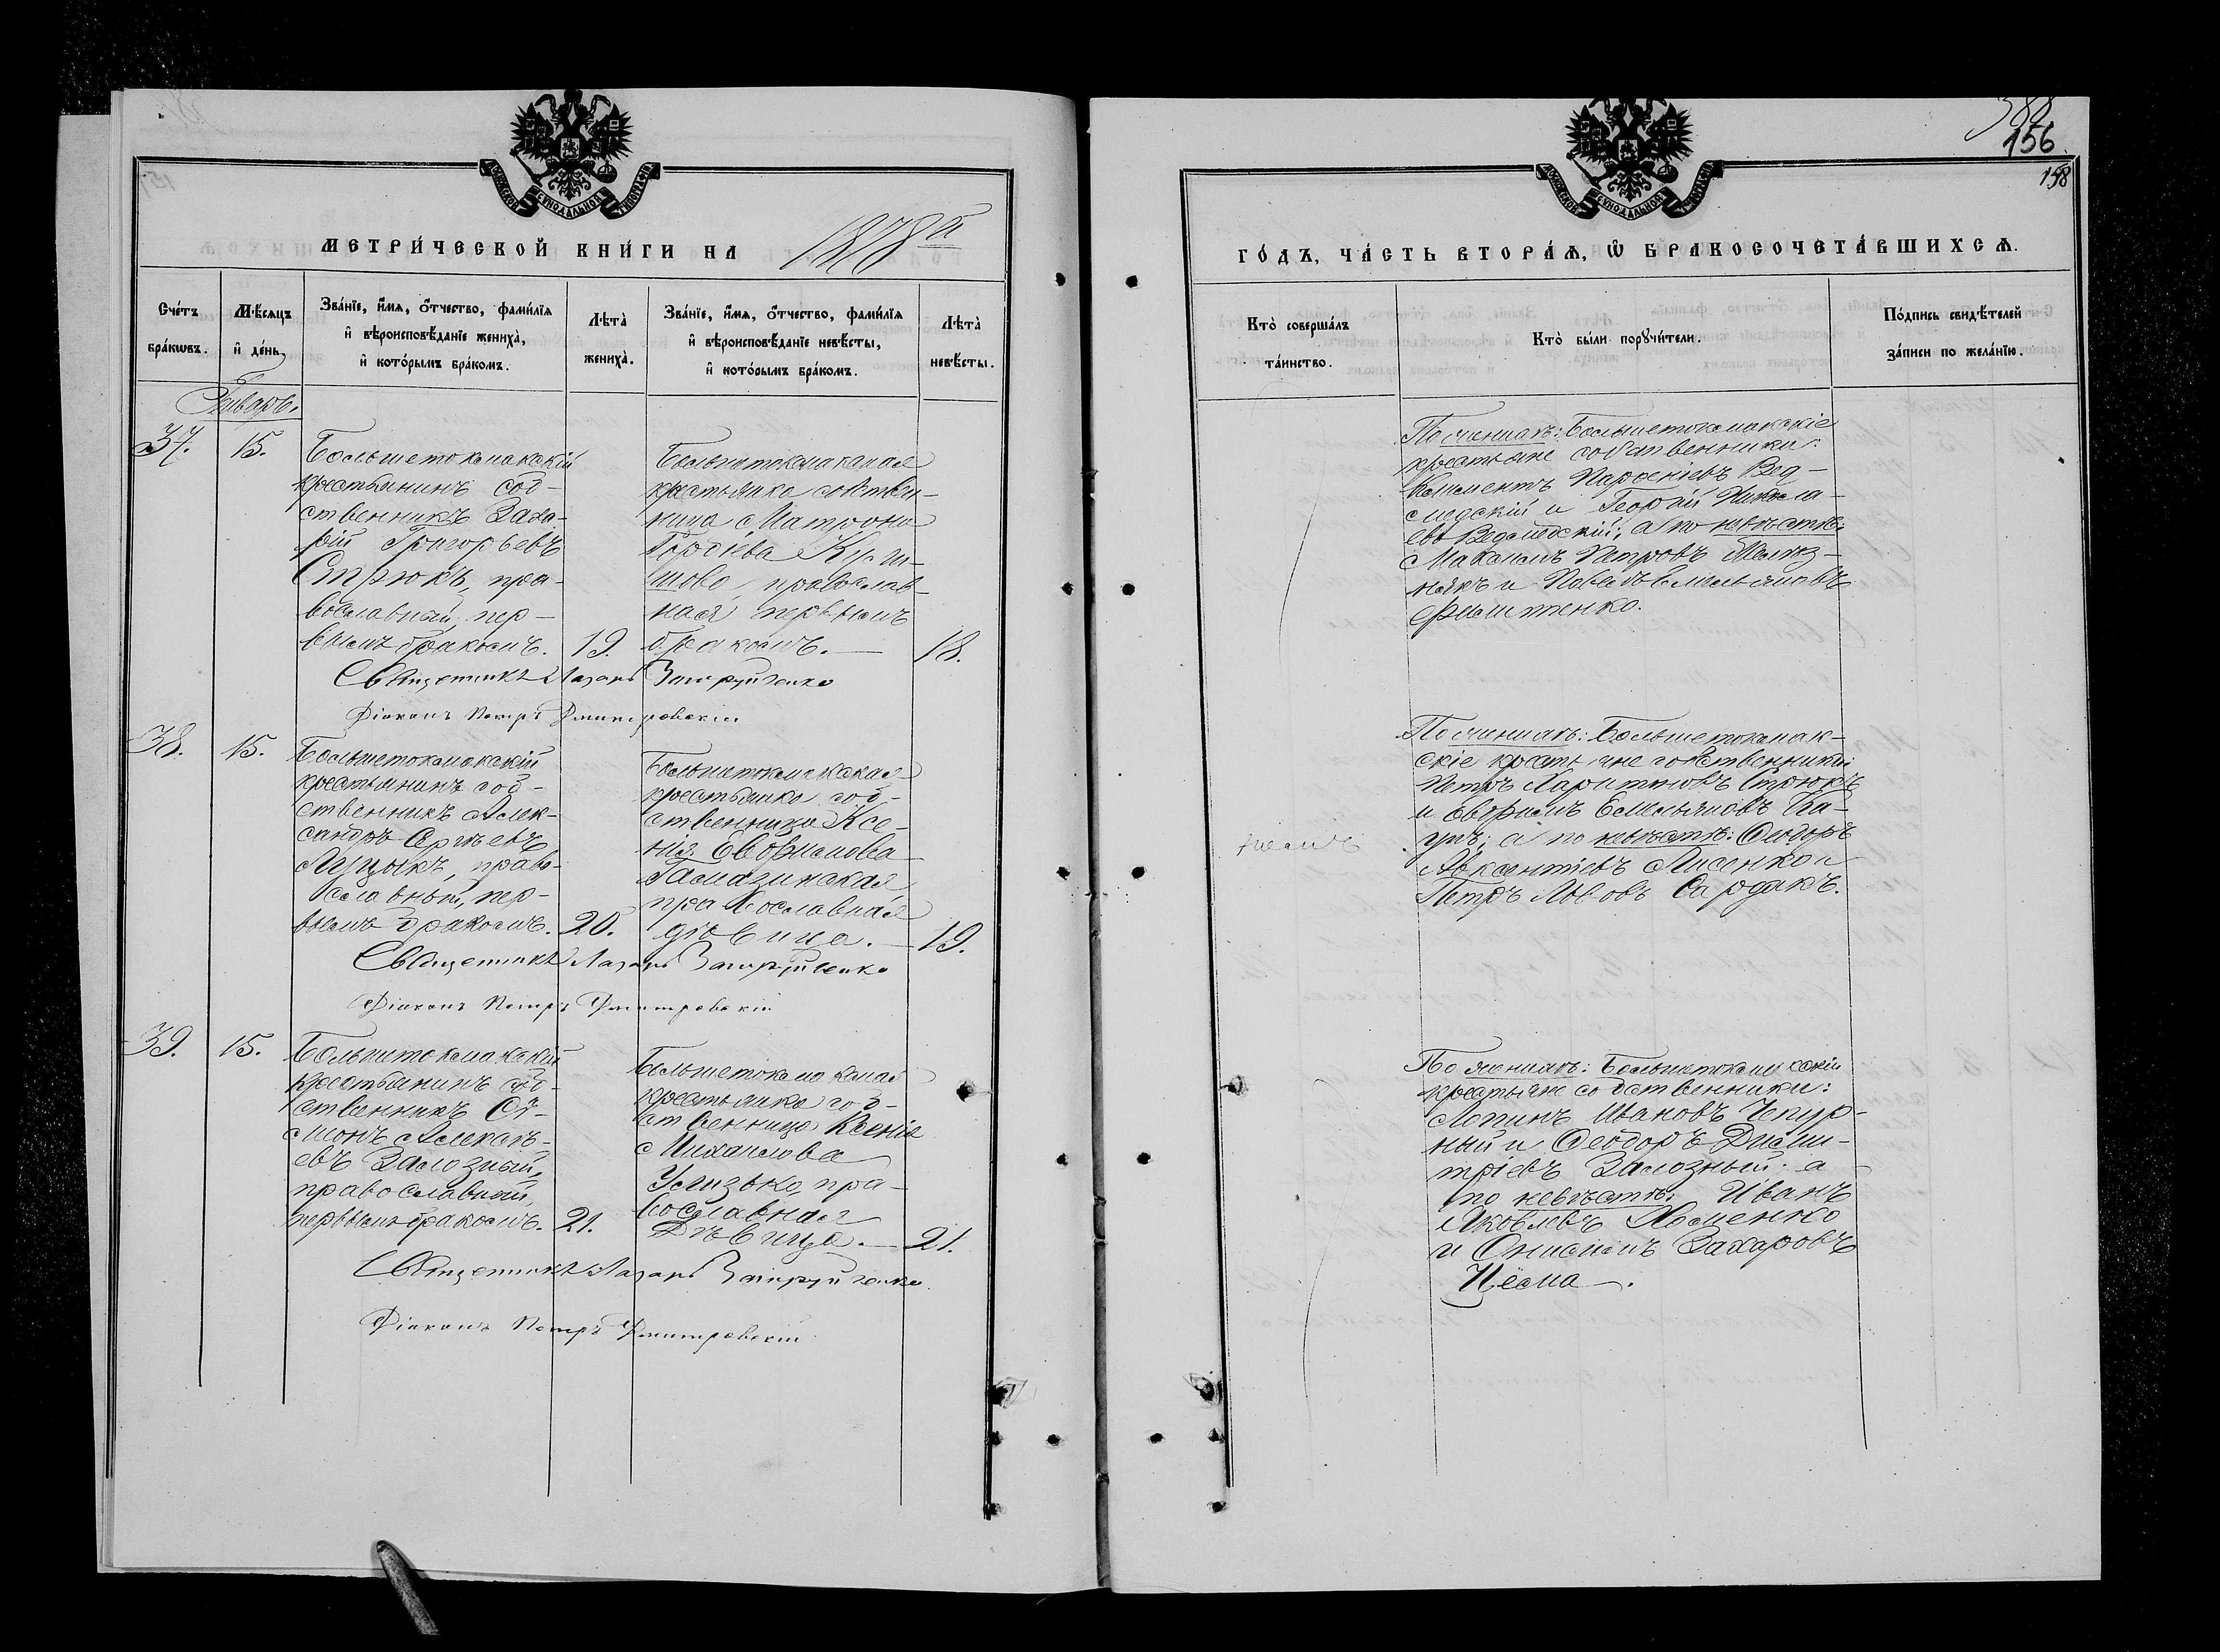 МЕТРИ́ЧЕСКОЙ КНИ́ГИ НА 1878й
Сче́тъ бра́кѡвъ.
Мѣ́сяцъ и де́нь.
Зва́нїе, и́мѧ, о́тчество, фами́лїѧ и вѣроисповѣ́данїе жениха̀, и кото́рымъ бра́комъ.
Лѣта̀ жениха̀.
Зва́нїе, и́мѧ, о́тчество, фами́лїѧ и вѣроисповѣ́данїе невѣ́сты, и кото́рымъ бра́комъ.
Лѣта̀ невѣ́сты.
Январь.
37.
15.
Большетокмакскій
крестьянинъ соб-
ственникъ Заха-
рій Григорьевъ
Стрюкъ, пра-
вославный, пер-
вымъ бракомъ.
19.
Большетокмакская
крестьянка собствен-
ница Матрона
Гордіева
православ-
ная первымъ
бракомъ.
18.
Священникъ Лазарь
Діаконъ Петръ Дмитровскій
38.
15.
Большетокмакскій
крестьянинъ соб-
ственникъ Алек-
сандръ Сергѣевъ
Луцыкъ, право-
славный, пер-
вымъ бракомъ.
20.
Большетокмакская
крестьянка соб-
ственница Ксе-
нія Евфимова
Гамазинская
православная
дѣвица.
19.
Священникъ Лазарь
Діаконъ Петръ Дмитровскій
39.
15.
Большетокмакскій
крестьянинъ соб-
ственникъ
Алексѣ-
евъ Залозный,
православный,
первымъ бракомъ.
21.
Большетокмакская
крестьянка соб-
ственница Ксенія
Михаилова
пра-
вославная
Дѣвица.
21.
Священникъ Лазарь
Діаконъ Петръ Дмитровскій
388
156.
158
ГО́ДЪ, ЧА́СТЬ ВТОРА́Ѧ, Ѡ БРАКОСОЧЕТА́ВШИХСѦ.
Кто̀ соверша́лъ та́инство.
Кто̀ бы́ли порꙋчи́тели.
По́дпись свидѣ́телей за́писи по жела́нїю.
По женихѣ: Большетокмакскіе
крестьяне собственники:
Климентъ Парѳеніевъ Вед-
медскій и Георгій Никола-
евъ Ведмедскій; а по невѣстѣ:
Максимъ Петровъ Желѣз-
някъ и Павелъ Емельяновъ
По женихѣ: Большетокмак-
скіе крестьяне собственники:
Петръ Харитоновъ Стрюкъ
и Евфимъ Емельяновъ Ка-
а по невѣстѣ: Ѳеодоръ
Авксентіевъ Лисенко и
Петръ Львовъ Сардакъ.
По женихѣ: Большетокмакскіи
крестьяне собственники:
Логинъ Ивановъ Чепур-
ный и Ѳеодоръ Дими-
тріевъ Залозный; а
по невѣстѣ: Иванъ
Яковлевъ Хоменко
и Онисимъ Захаровъ